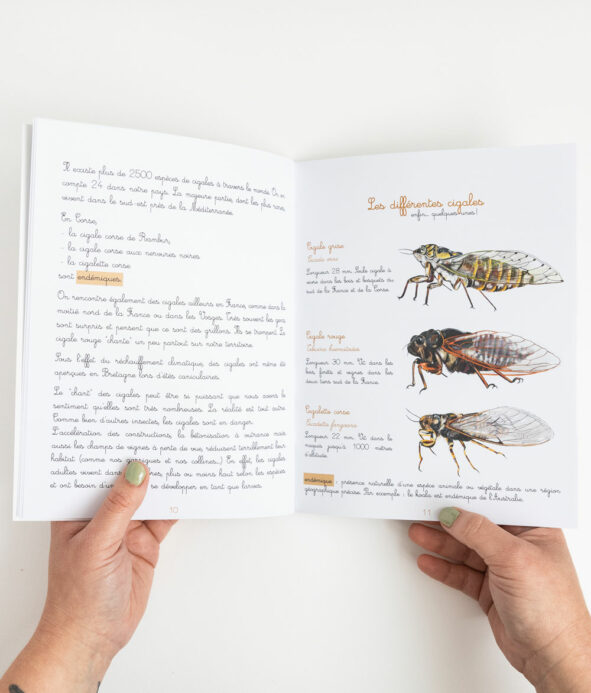 Il existe plus de 2500 espèces de cigales à travers le monde. On en
compte 24 dans notre pays. La majeure partie, dont les plus rares,
vivent dans le sud-est près de la Méditerranée.
En Corse,
- la cigale corse de Rambur,
- la cigale corse aux nervures noires
- la cigalette corse
sont endémiques.
On rencontre également des cigales ailleurs en France, comme dans la
moitié nord de la France ou dans les Vosges. Très souvent les gens
sont surpris et pensent que ce sont des grillons. Ils se trompent. La
cigale rouge "chante" un peu partout sur notre territoire.
Sous l'effet du réchauffement climatique, des cigales ont même été
aperçues en Bretagne lors d'étés caniculaires.
Le "chant" des cigales peut être si puissant que nous avons le
sentiment qu'elles sont très nombreuses. La réalité est tout autre.
Comme bien d'autres insectes, les cigales sont en danger.
L'accélération des constructions, la bétonisation à outrance mais
aussi les champs de vignes à perte de vue, réduisent terriblement leur
habitat (comme nos garrigues et nos collines...) En effet, les cigales
adultes vivent dans nes, plus ou moins haut selon les espèces
et ont besoin d'un se développer en tant que larves.
10
Les différentes cigales
enfin... quelques unes !
Cigale grise
Cicada orni
Longueur 28 mm. Seule cigale à
vivre dans les bois et bosquets au
sud de la France et de la Corse.
Cigale rouge
Tibicina haematodes
Longueur 30 mm. Vit dans les
bois, forêts et vignes dans les
deux tiers sud de la France.
Cigalette corse
Cicadetta fangoana
Longueur 22 mm. Vit dans le
maquis jusqu'à 1000 mètres
d'altitude.
endémique : présence naturelle d'une espèce animale ou végétale dans une région
géographique précise. Par exemple : le koala est endémique de l'Australie.
11